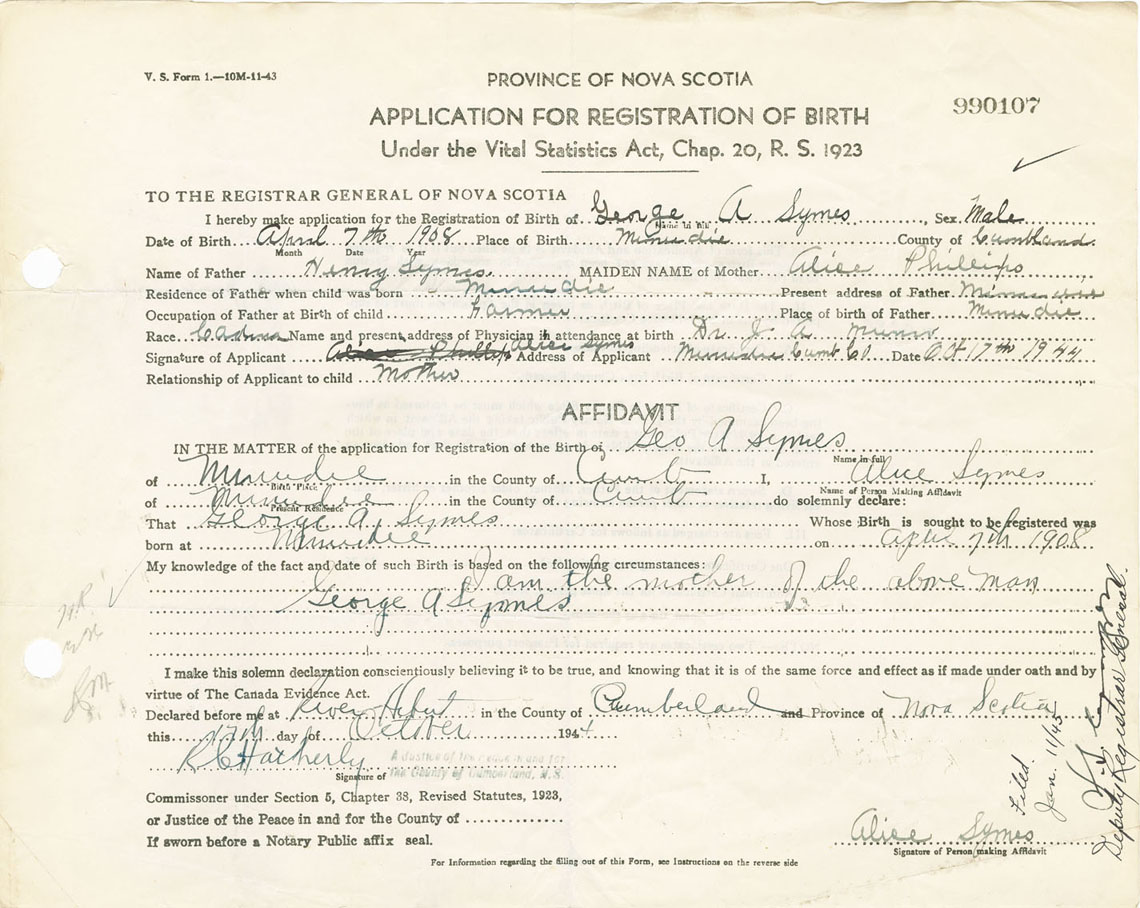 V. S. Form 1.—10M-11-43
PROVINCE OF NOVA SCOTIA
990107
APPLICATION FOR REGISTRATION OF BIRTH
Under the Vital Statistics Act, Chap. 20, R. S. 1923
TO THE REGISTRAR GENERAL OF NOVA SCOTIA
I hereby make application for the Registration of Birth of George A Symes, Sex Male
Name in full
Date of Birth April 7th 1908 Place of Birth Minudie County of Cumbland
Month Date Year
Name of Father Henry Symes MAIDEN NAME of Mother Alice Phillips
Residence of Father when child was born Minudie Present address of Father Minudie
Occupation of Father at Birth of child Farmer Place of birth of Father Minudie
Race Name and present address of Physician in attendance at birth Dr. J A Munro
Signature of Applicant Alice Phillips Alice Symes Address of Applicant Minudie Cumb Co Date Oct 17th 1944
Relationship of Applicant to child Mother
AFFIDAVIT
IN THE MATTER of the application for Registration of the Birth of Geo A Symes
Name in full
of Minudie in the County of Cumb I, Alice Symes
Birth Place Name of Person Making Affidavit
of Minudie in the County of Cumb do solemnly declare:
Present Residence
That George A. Symes Whose Birth is sought to be registered was
born at Minudie on April 7th 1908
My knowledge of the fact and date of such Birth is based on the following circumstances:
I am the mother of the above man
George A Symes
I make this solemn declaration conscientiously believing it to be true, and knowing that it is of the same force and effect as if made under oath and by
virtue of The Canada Evidence Act.
Declared before me at River Hebert in the County of Cumberland and Province of Nova Scotia
this 17th day of October 1944
R C Hatherly
A Justice of the Peace in and for
Signature of The County of Cumberland, N.S.
Commissioner under Section 5, Chapter 38, Revised Statutes, 1923,
or Justice of the Peace in and for the County of
If sworn before a Notary Public affix seal.
Alice Symes
Signature of Person making Affidavit
For Information regarding the filling out of this Form, see Instructions on the reverse side
Filed
Jan. 11/45
Deputy Registrar General.